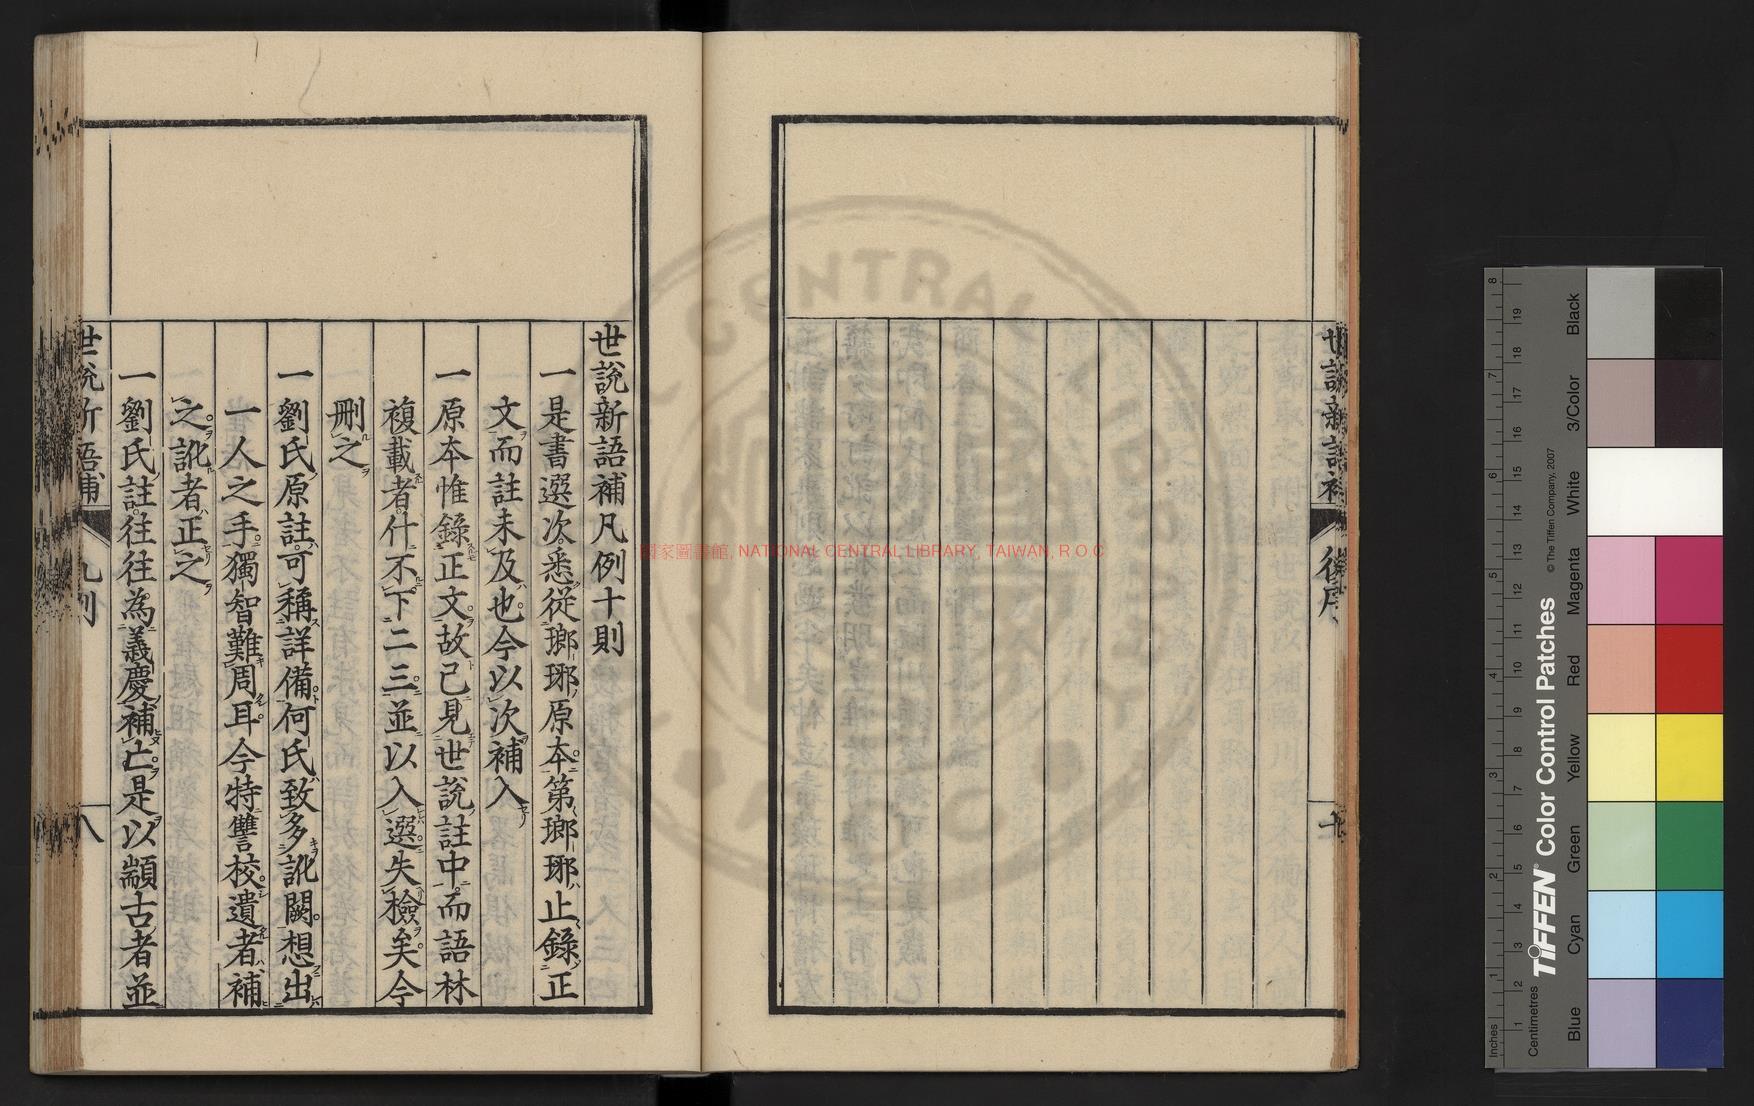 世說新語補
後序
世說新語補凡例十則
一是書選次悉從瑯琊原本第瑯琊止錄正
文而註未及也今以次補入
一原本惟錄正文故已見世說註中而語林
複載者什不下二三並以入選失檢矣今
刪之
一劉氏原註可稱詳備何氏致多訛闕想出
一人之手獨智難周耳今特讐校遺者補
之訛者正之
一劉氏註往往為義慶補亡是以顓古者並
世說新語補
凡例
八
國家圖書館, NATIONAL CENTRAL LIBRARY, TAIWAN, R O C
Inches
Centimetres
1 2 3 4 5 6 7 8
1 2 3 4 5 6 7 8 9 10 11 12 13 14 15 16 17 18 19
TIFFEN® Color Control Patches
© The Tiffen Company, 2007
Blue
Cyan
Green
Yellow
Red
Magenta
White
3/Color
Black